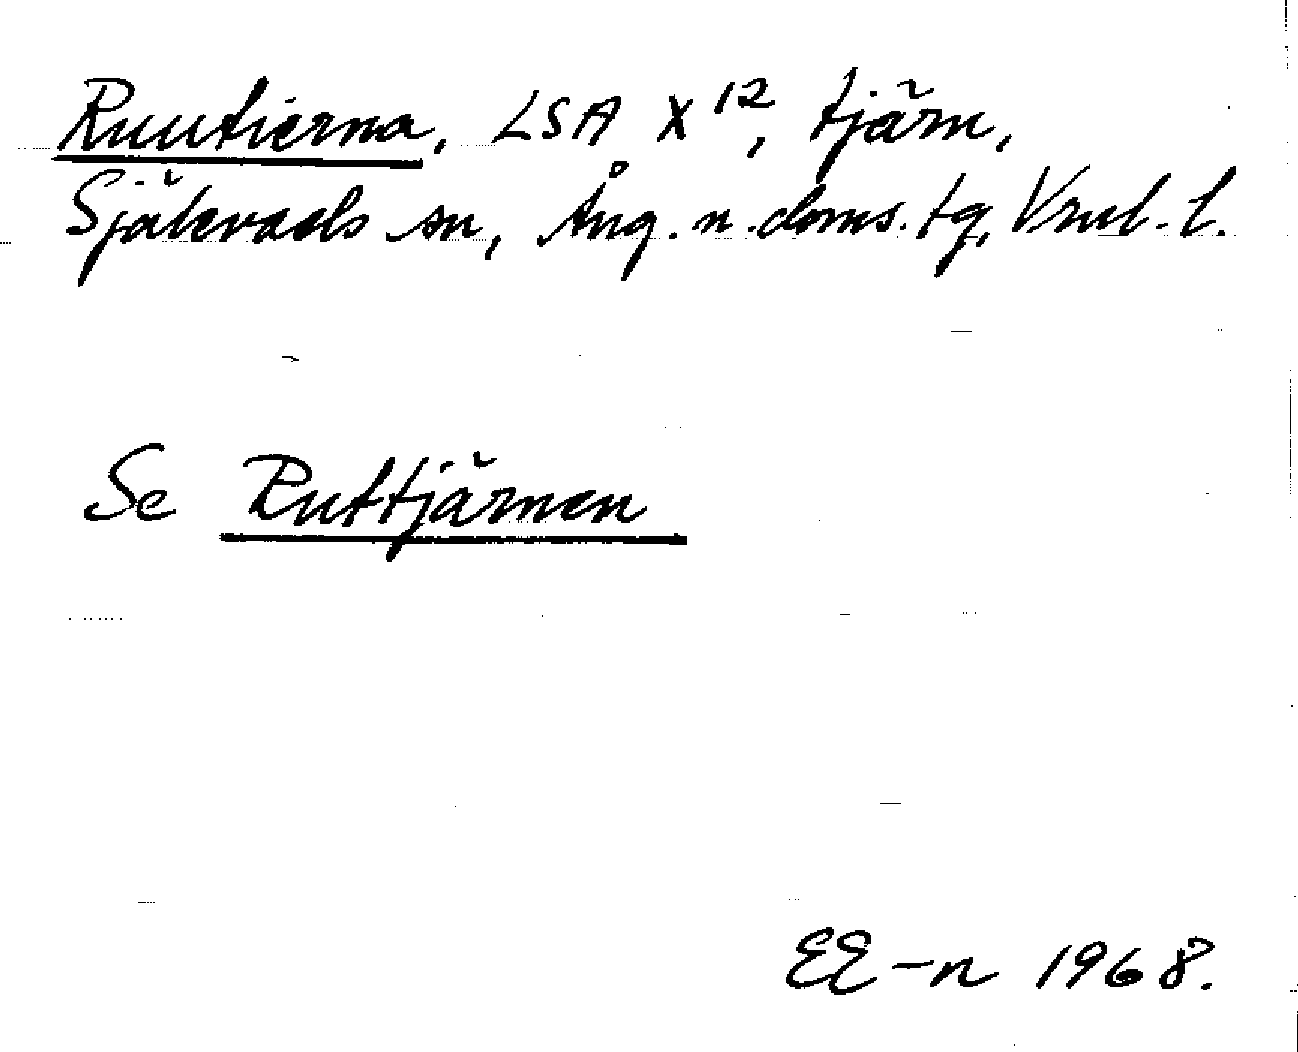 Ruutierna, LSA X¹², tjärn,
Själevads sn, Ång. n. doms. tg, Vnrl. l.
Se Ruttjärnen
EE-n 1968.